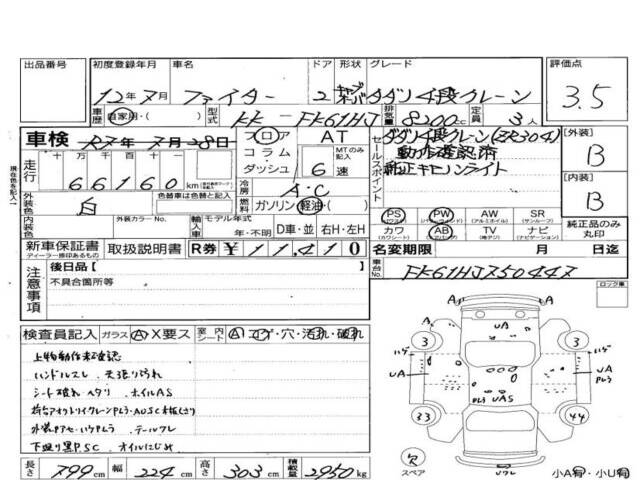 出品番号 初度登録年月 車名 ドア 形状 グレード 評価点
12年7月 ファイター 2 タダノ4段クレーン 3.5
車歴 自家用・( ) 型式 KK-FK61HJ 排気量 8200cc 定員 3人
車検 R7年7月28日 フロア AT セールスポイント タダノ4段クレーン(ZR304) [外装] B
走行 十万 万 千 百 十 コラム・ダッシュ MTのみ記入 6速 動作確認済
66160km 純正キセノンライト [内装] B
冷房 A・C
外装色 白 色替車は色替と記入 燃料 ガソリン・軽油・( )
内装色 外装カラーNo. 輸入車 モデル年式 年・不明 D車・並 右H・左H
PS (パワステ) PW (パワーウィンド) AW (アルミホイル) SR (サンルーフ)
カワ (カワシート) AB (エアバック) TV (地デジ) ナビ (ナビゲーション) 純正品のみ丸印
新車保証書 ディーラー捺印あるもの 取扱説明書 R券 ¥11,410 名変期限 月 日迄
注意事項 後日品【 】 車台No. FK61HJ750447
不具合箇所等 ロック車
検査員記入 ガラス A・X要ス 室内シート A・コゲ・穴・汚れ・破れ
上物動作未確認
ハンドルスレ 天張り汚れ
シート破れ ヘタリ ホイルAS
下廻り黒P.SC オイルにじみ
長さ 799cm 幅 224cm 高さ 303cm 積載量 2950kg
A A
3 UA 3
ハゲ ハゲ
UA UA
UAS
33 44
欠 スペア Uワレ 小A有・小U有
現在色を記入